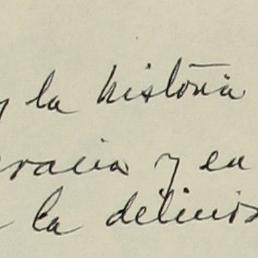 y la historia
racia y en
la delicios